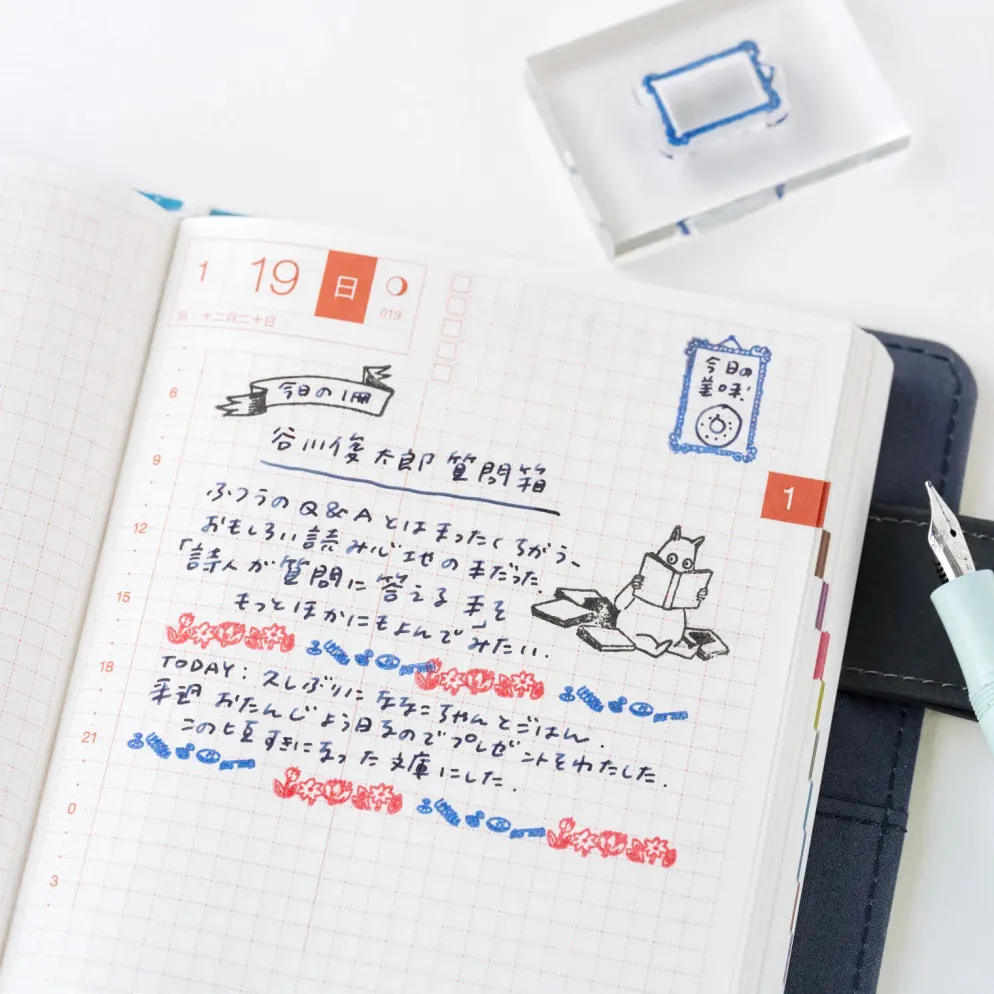 1 19 日
019
十二月二十日
今日の1冊
今日の
美味!
谷川俊太郎質問箱
1
ふつうのQ&Aとはまったくちがう、
おもしろい読み心地の本だった.
「詩人が質問に答える本」を
もっとほかにもよんでみたい.
TODAY: 久しぶりにななこちゃんとごはん.
来週おたんじょう日なのでプレゼントをわたした.
このヒ夏すきになった文庫にした.
6
9
12
15
18
21
0
3